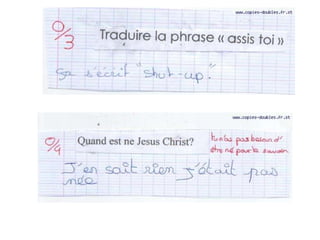 www.copies-doubles.fr.st
0/3
Traduire la phrase « assis toi »
Ça s'écrit "shut-up".
www.copies-doubles.fr.st
0/4
Quand est ne Jesus Christ?
tu n'as pas besoin d'
être né pour le savoir.
J'en sait rien j'était pas
née